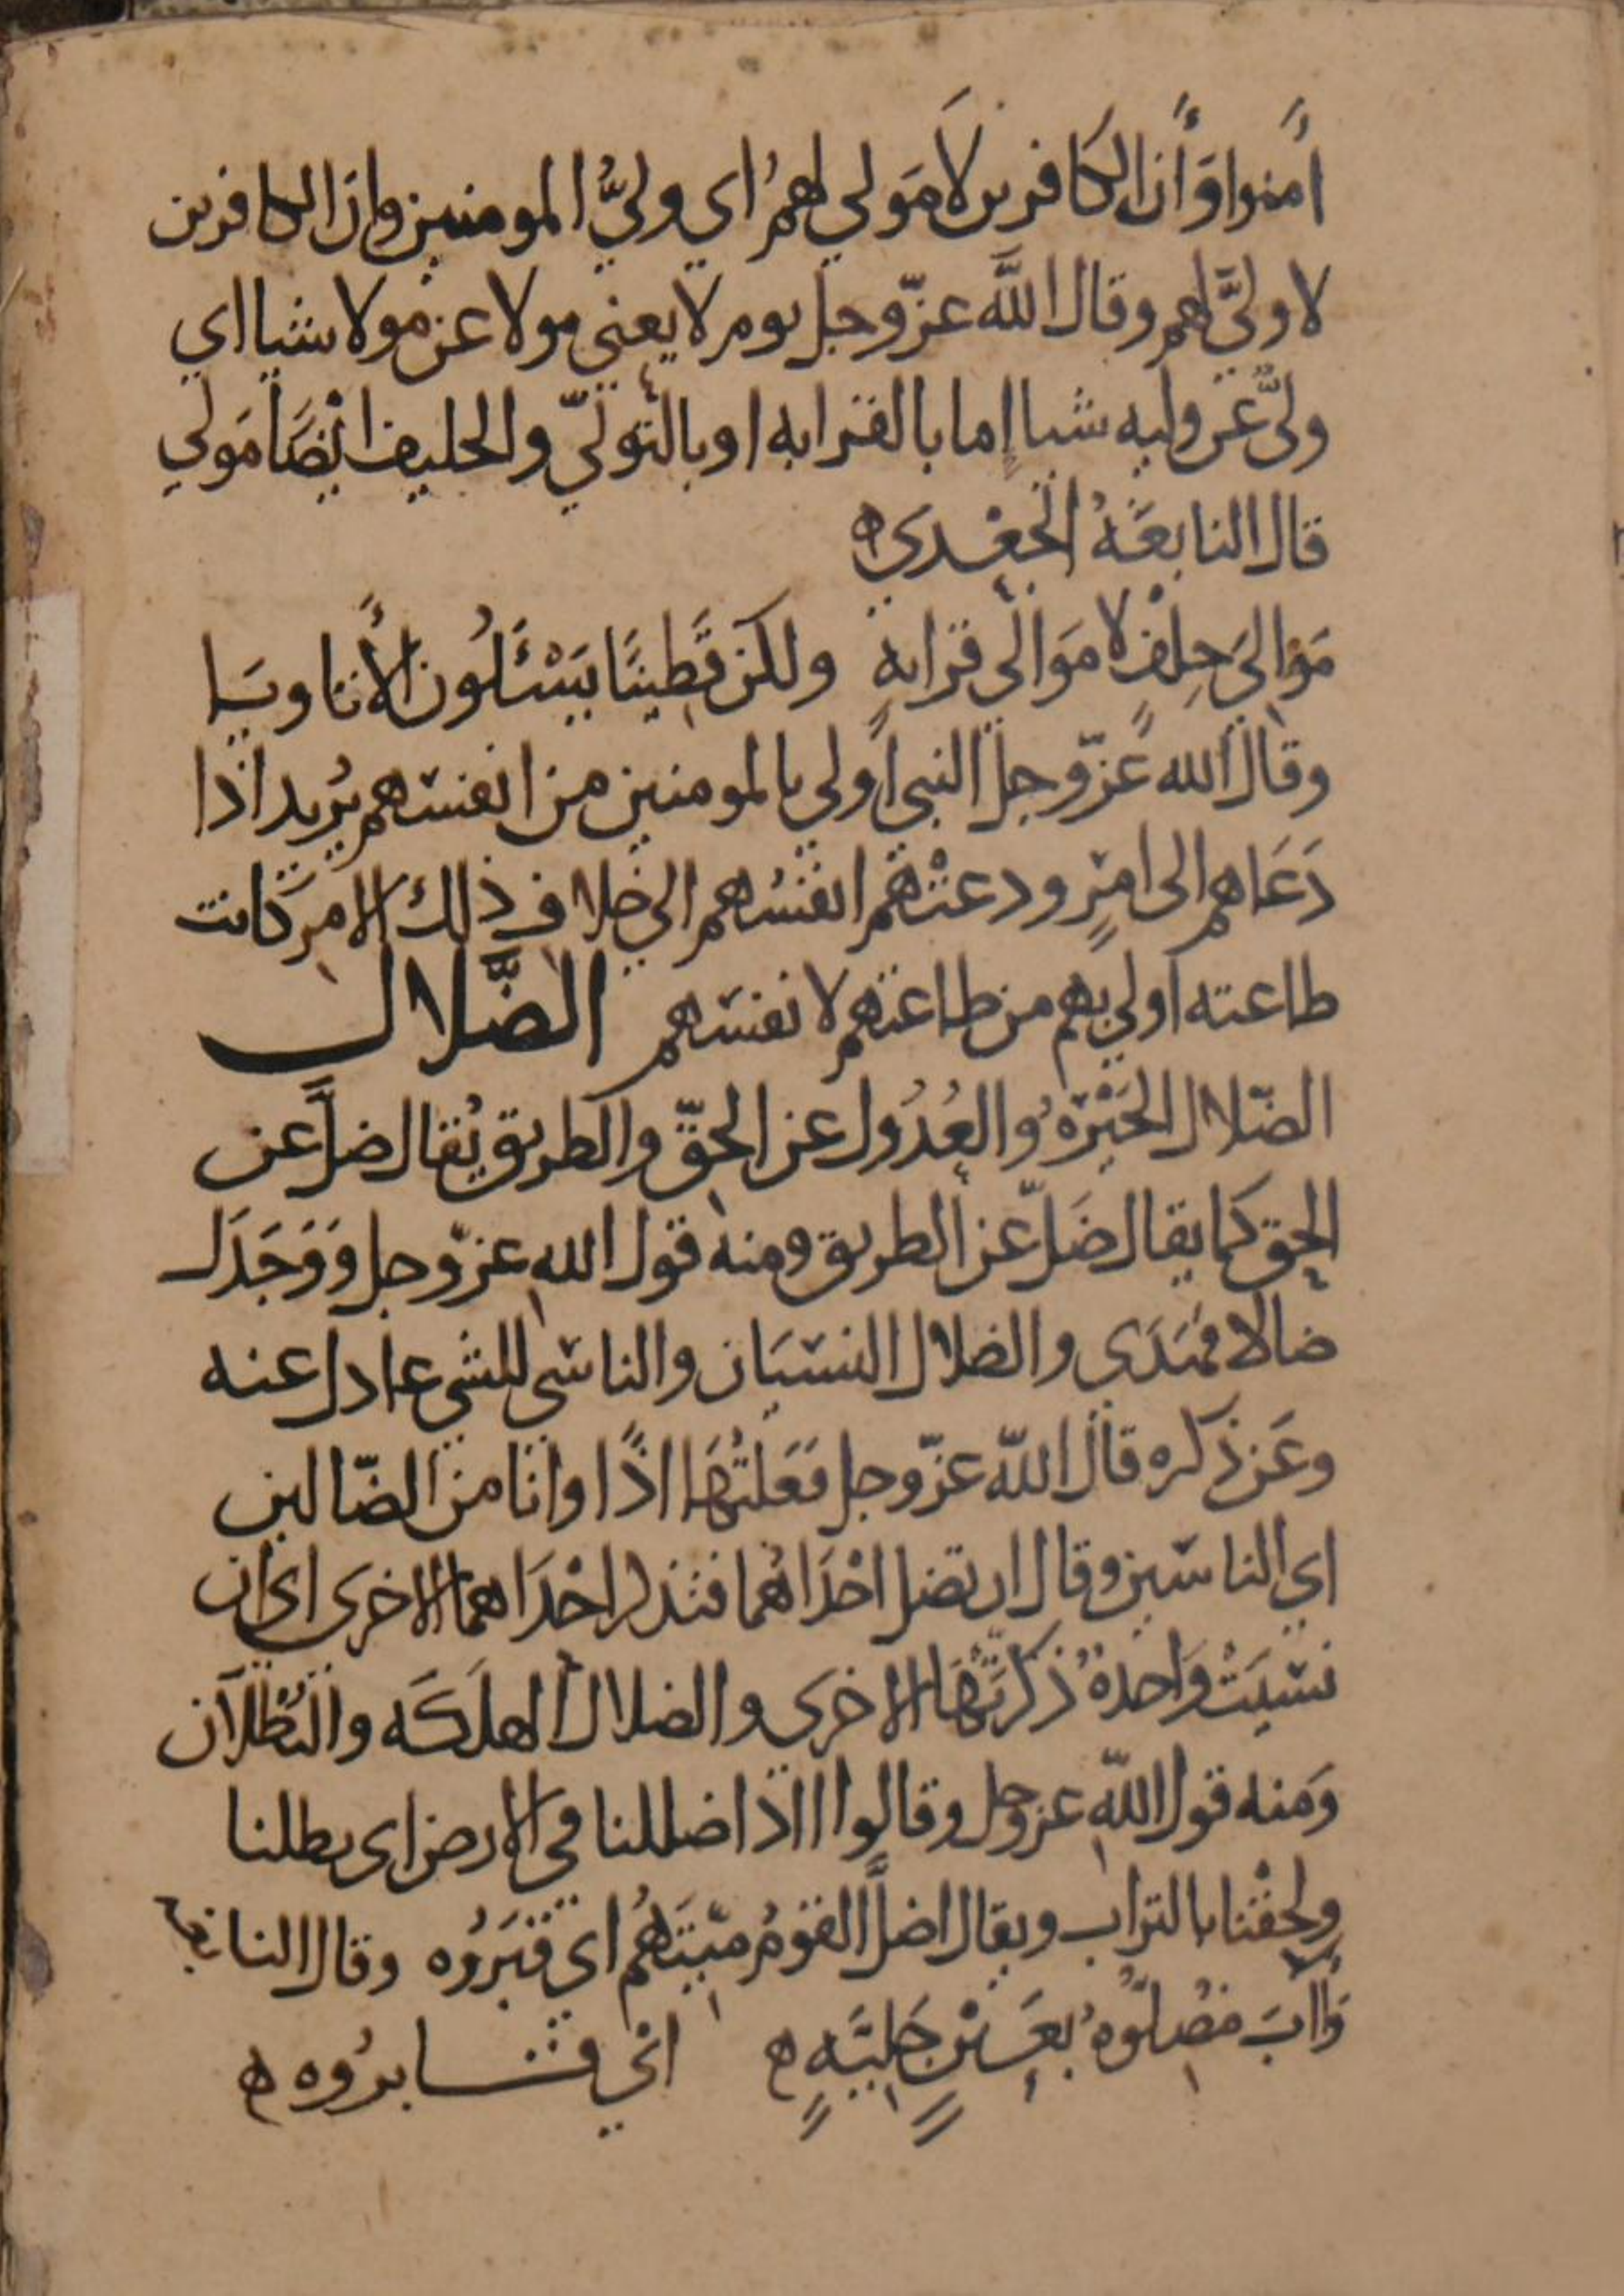 اٰمنوا وَأن الكافرين لَا مَولي لهمُ اي وليُّ المومنين وان الكافرين
لا وليَّ لهم وقال اللَّه عزّ وجل يوم لا يغني مولا عن مولا شيا اي
وليّ عن وليه شيا اِما بالقرابه او بالتوليّ والحليف ايْضًا مَولي
قال النابغَةُ الجَعْدي ه
مَوَالي حِلفٍ لا مَوَالي قرابهٍ ولكن قَطِينًا يَسْئَلُون الأتاويَا
وقال الله عزّ وجل النبي اولي بالمومنين من انفسهم يُريد اذا
دَعَاهم الى امرٍ ودعتْهُم انفسُهم الي خلاف ذلك الامر كانت
طاعته اولي بهم من طاعتهم لانفسهم الضَّلال
الضّلال الحَيْرَةُ والعُدُول عن الحقّ والطريق يُقال ضلَّ عن
الحق كما يقال ضَلّ عن الطريق ومنه قول الله عزّ وجل وَوَجَدَك
ضالا فهَدَي والضلال النسيَان والناسي للشي عادل عنه
وعَن ذكره قال اللّه عزّ وجل فَعَلتُهَا اذًا وانَا من الضّالين
اي الناسين وقال ان تضل احْدَاهُما فتذكر احْدَاهما الاخرى اى ان
نسيَتْ وَاحدةٌ ذكرتَّهَا الاخرى والضلال الهلَكَه والبُطْلَان
وَمنه قول اللّهِ عز وجل وقالوا ااذا ضللنا في الارض اى بطلنا
ولحِقْنا بالتراب ويقال اضلَّ القومُ ميّتَهُم اى قبَرُوه وقال النابغه
وَاٰبَ مُضِلُّوهُ بعَينٍ جَلِيَّهٍ ه اي قــابرُوه ه